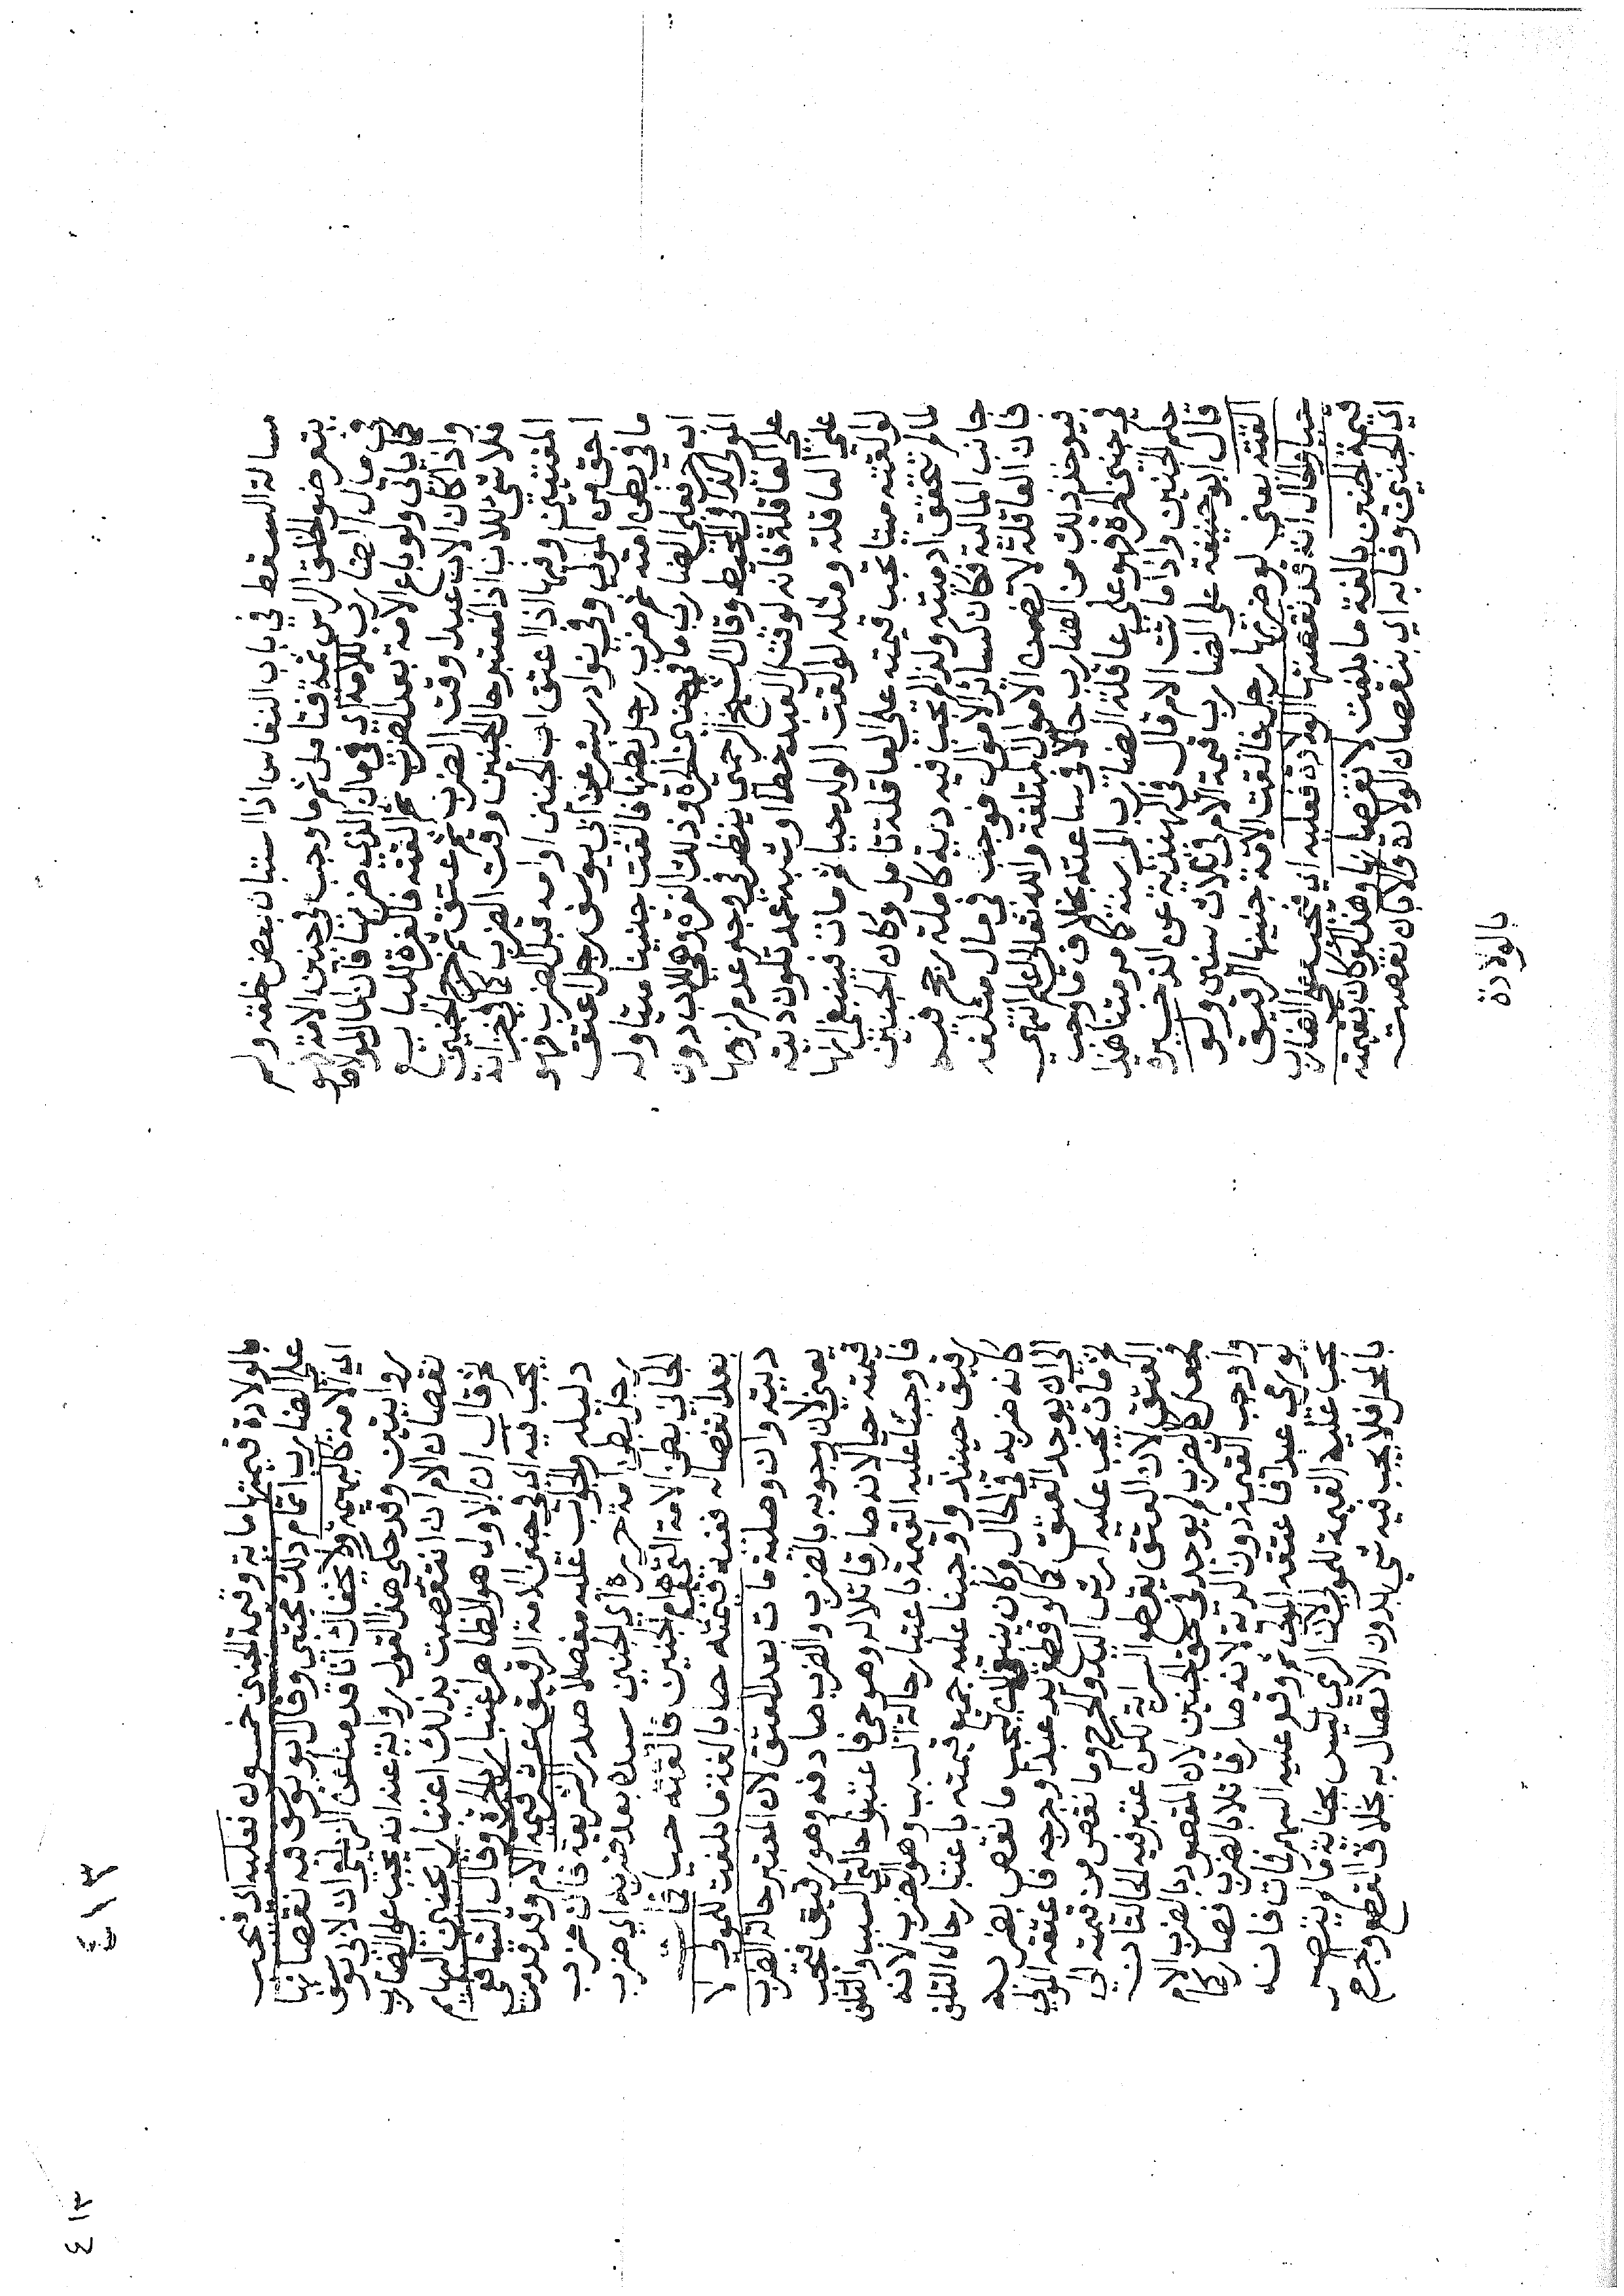 مسالة السقط في باب النفاس اذا استبان بعض خلقه ولم
يتعرضو لخلق الراس ثمة فتامل ثم ما وجب في جنين الامة هو
في مال الضارب للامة اي في مال الذي ضربها فان المال لمولاها
كما ياتي ولو باع الامة بعد الضرب ثم القته فالغرة للبايع
واذا كان الاب عبدا وقت الضرب ثم عتق ثم خرج الجنين
فلا شي للاب اذ المعتبر حال الجنين وقت الضرب كما في خزانة
المفتيين وفيها اذا اعتق اب الجنين او امه قبل الضرب فهو
احق من المولى وفي نوادر بشر عن ابي يوسف رجل اعتق
ما في بطن امته ثم ضرب رجل بطنها فالقت جنينا ميتا وله
اب حر فعلى الضارب ما في جنين الحرة وذلك الغرة وهي للاب دون
المولى كذا في المحيط وقال الشيخ الرحمتي ينظر في وجه عدم لزومها
على العاقلة فانه لو قتل العبد خطا او شبه عمد تكون ديته
على العاقلة ومثله لو القت الولد حيا ثم مات فينبغي انها
لو القته ميتا تجب قيمته على العاقلة تامل وكان الجنين
لما لم تتحقق ادميته ولذا لم تجب فيه دية كاملة رجح فيه
جانب المالية فكان كسائر الاموال فوجب في مال متلفه
فان العاقلة لا تضمن الاموال المتلفة والله تعالى اعلم انتهى
فيوخذ ذلك من الضارب حالا في ساعته بخلاف ما وجب
في جنين الحرة فهو على عاقلة الضارب الى سنة كما مر متنا هذا
حكم الجنين واذا ماتت الام قال في الهندية عن الذخيرة
قال ابو حنيفة على الضارب قيمة الام في ثلاث سنين ولو
القته يعني لو ضربها رجل فالقت الامة جنينها الرقيق
حيا والحال انه قد نقصتها الولادة فعليه اي فتجب على الضارب
قيمة الجنين بالغة ما بلغت لا نقصانها وهذا لو كان بقيمته
اي الجنين وفاء به اي بنقصان الولادة والا بان نقصت
بالولادة
بالولادة قيمتها مائة وقيمة الجنين خمسون فعليه اي فتجب
على الضارب اتمام ذلك مجتبى وقال ابو يوسف فيه نقصانها
اي الامة كالبهيمة ولا يخفاك انا قدمنا عن الزيلعي ان لابي يوسف
روايتين وقد حكى هذا القول رواية عنه انه يجب على الضارب
نقصان الام ان انتقصت بذلك اعتبارا بجنين البهايم
ثم قال ان الاول هو الظاهر اعتبارا بالحرة وقال الشافعي
يجب فيه اي في جنين الامة الرقيق عشر قيمة الام وقد قدمنا
دليله والجواب عنه مفصلا صدر الشريعة فان ضرب
رجل بطن امة حريرة اي الجنين سيده بعد ضربه اي ضرب
الجاني بطن الامة التي هي ام الجنين فالقته حيا فمات
بعد انفصاله ففيه قيمته حيا بالغة ما بلغت للمولى لا
ديته وان وصلية مات بعد العتق لان المعتبر حالة الضرب
يعني لان وجوبه بالضرب والضرب صادفه وهو رقيق فتجب
قيمته حيا لانه صار قاتلا له وهو حي فاعتبرنا حالتي السبب والتلف
فاوجبنا عليه القيمة باعتبار حالة السبب وهو الضرب لانه
رقيق حينئذ واوجبنا عليه جميع قيمته باعتبار حال التلف
كانه ضربه في الحال وكان ينبغي ان يجب ما نقص بضربه
الى ان يوجد العتق كما لو قطع يد عبد او جرحه فاعتقه المولى
ثم مات يجب عليه ارش اليد والجرح وما نقص من قيمته الى
العتق لان العتق يقطع السراية لكن اعتبر فيه الحالتان
فجعل كان الضرب لم يوجد في حق الجنين لان المقصود بالضرب الام
واوجب القيمة دون الدية لانه صار قاتلا بالضرب فصار كما
لو رمي عبدا فاعتقه المولى ثم وقع عليه السهم فمات فانه
يجب عليه القيمة للمولى لان الرمي ليس بجناية ما لم يتصل
بالمحل فلا يجب فيه شي بدون الاتصال به بخلاف القطع والجرح
٤١٣
٤١٣